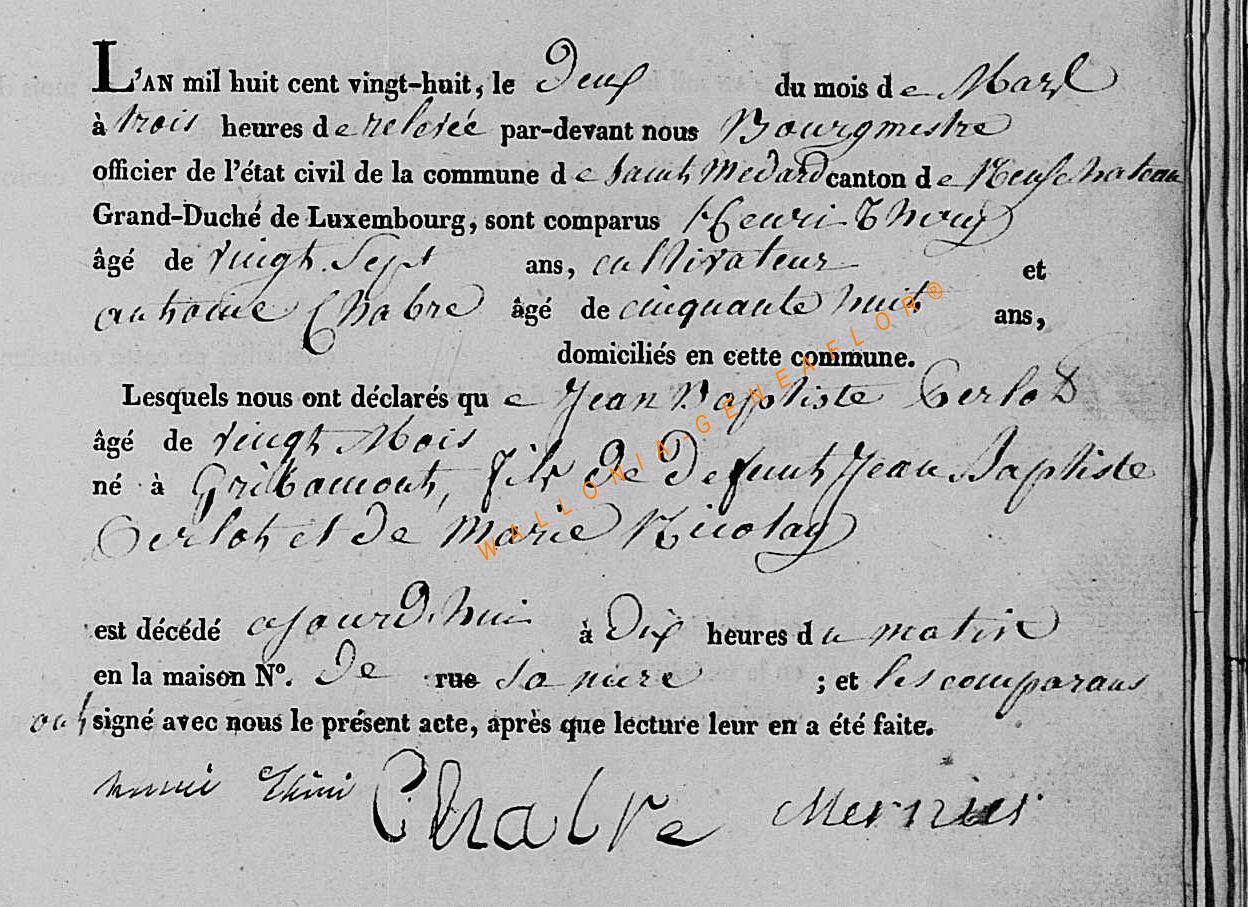 L'AN mil huit cent vingt-huit, le Deux du mois de Mars
à trois heures de relevée par-devant nous Bourgmestre
officier de l'état civil de la commune de Saint Medard canton de Neufchateau
Grand-Duché de Luxembourg, sont comparus Henri
âgé de vingt Sept ans, cultivateur et
antoine Chabre âgé de cinquante huit ans,
domiciliés en cette commune.
Lesquels nous ont déclarés que Jean Baptiste Gerlot
âgé de vingt Mois
né à Gribomont, fils de Defunt Jean Baptiste
Gerlot et de Marie Nicolay
est décédé ajourd'hui à Dix heures du matin
en la maison N°. De rue sa mere ; et les comparans
ont signé avec nous le présent acte, après que lecture leur en a été faite.
Chabre Mernier
WALLONIA-GENEAFLOR®